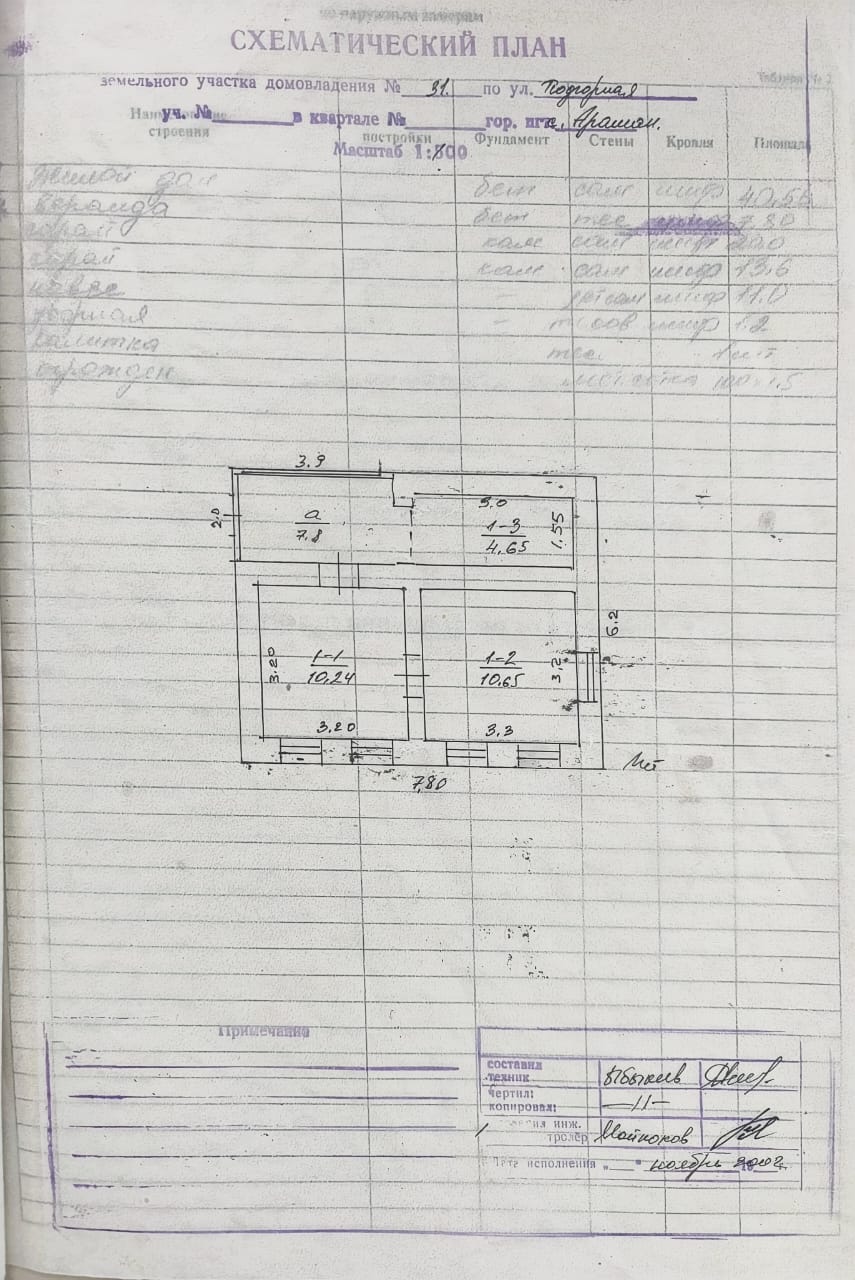 по наружным замерам
СХЕМАТИЧЕСКИЙ ПЛАН
Таблица № 2
земельного участка домовладения № 31. по ул. Подгорная
уч. № в квартале № гор. пгт. с. Арашан.
Наименование строения постройки Фундамент Стены Кровля Площадь
Масштаб 1:500
жилой дом бет сам шиф 40,56
веранда бет тес 7.80
сарай кам сам шиф
сарай кам сам шиф 13.6
навес - шиф 11.0
уборная - шиф 1.2
калитка тес 1 шт
огражден сетка
3.9
2.0
а
7.8
3.0
1-3
4.65
1.55
6.2
3.20
1-1
10,24
3.20
1-2
10.65
3.2
3.3
7,80
Примечание
составил
техник
чертил:
копировал: —11—
инж.
Дата исполнения „ “ ноябрь 2002